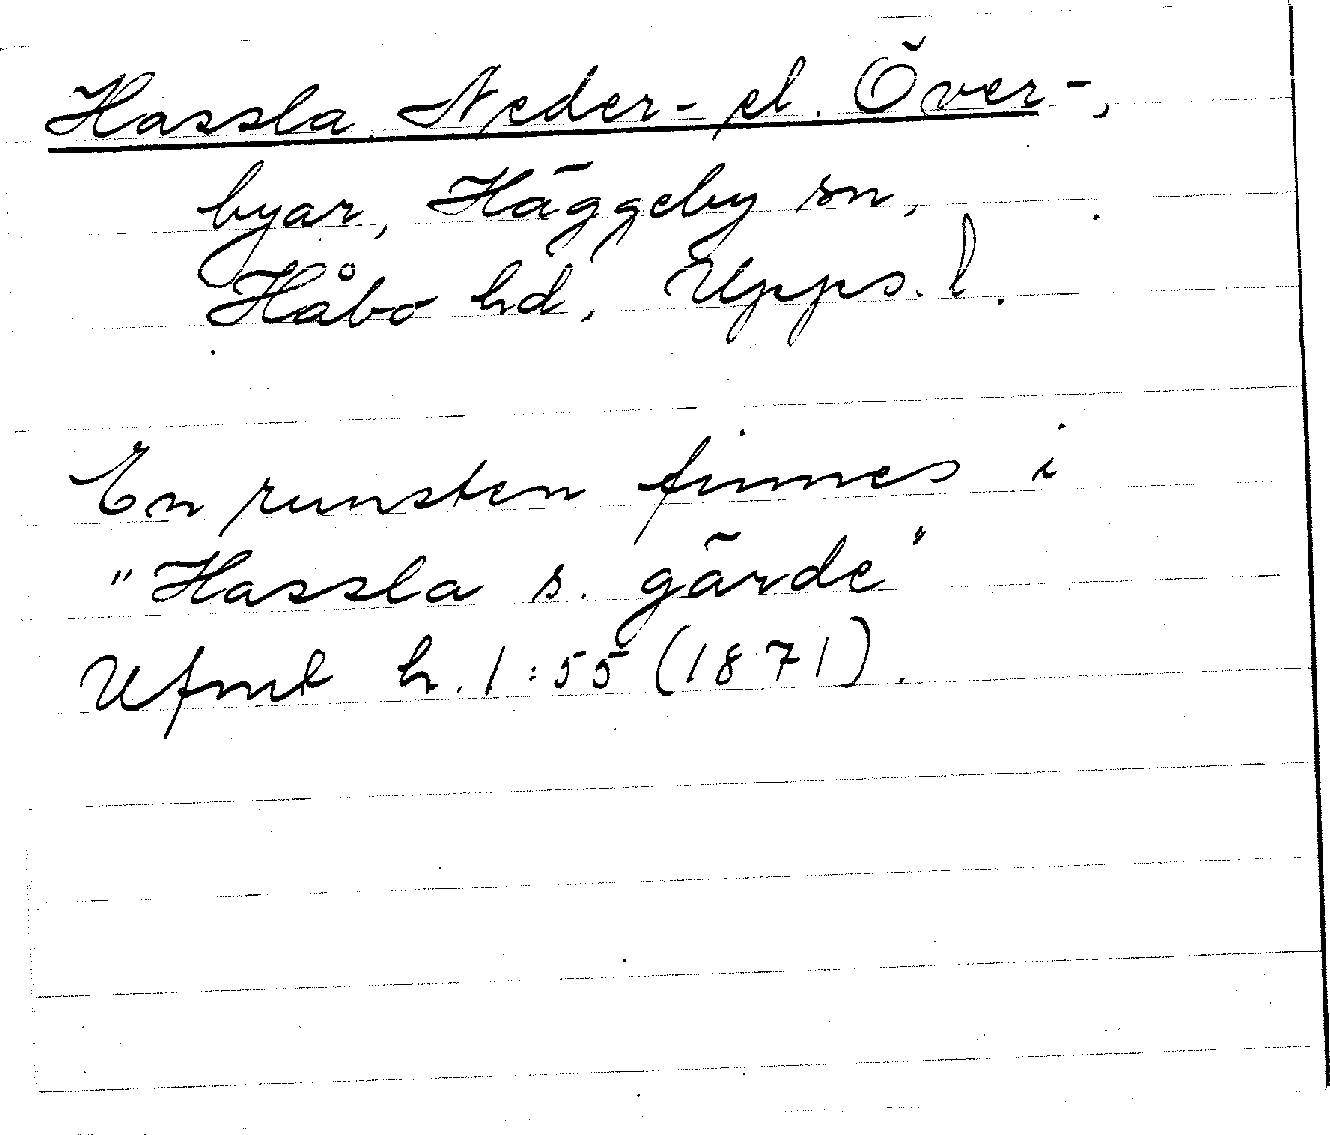 Hassla, Neder- el. Över-,
byar, Häggeby sn,
Håbo hd, Upps. l.
En runsten finnes i
"Hassla s. gärde"
Ufmt h. 1:55 (1871).